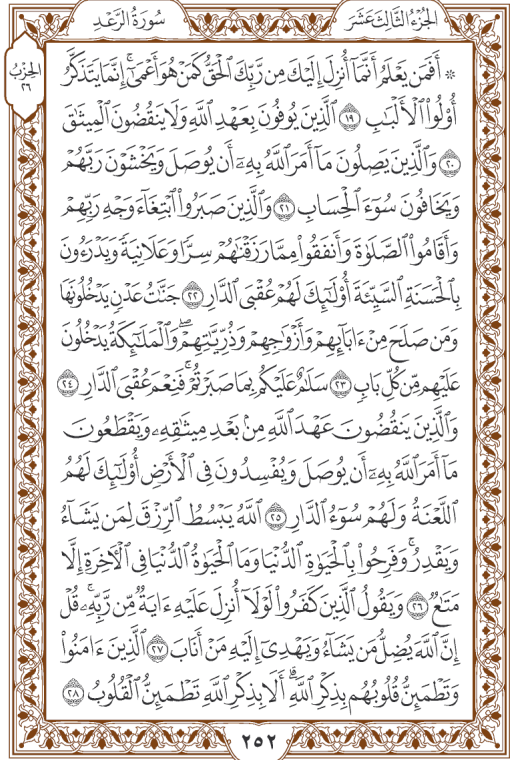 الجزء الثالث عشر
سورة الرعد
الحزب
٢٦
۞ أَفَمَن يَعْلَمُ أَنَّمَآ أُنزِلَ إِلَيْكَ مِن رَّبِّكَ ٱلْحَقُّ كَمَنْ هُوَ أَعْمَىٰٓۚ إِنَّمَا يَتَذَكَّرُ
أُو۟لُوا۟ ٱلْأَلْبَٰبِ ١٩ ٱلَّذِينَ يُوفُونَ بِعَهْدِ ٱللَّهِ وَلَا يَنقُضُونَ ٱلْمِيثَٰقَ
٢٠ وَٱلَّذِينَ يَصِلُونَ مَآ أَمَرَ ٱللَّهُ بِهِۦٓ أَن يُوصَلَ وَيَخْشَوْنَ رَبَّهُمْ
وَيَخَافُونَ سُوٓءَ ٱلْحِسَابِ ٢١ وَٱلَّذِينَ صَبَرُوا۟ ٱبْتِغَآءَ وَجْهِ رَبِّهِمْ
وَأَقَامُوا۟ ٱلصَّلَوٰةَ وَأَنفَقُوا۟ مِمَّا رَزَقْنَٰهُمْ سِرًّا وَعَلَانِيَةً وَيَدْرَءُونَ
بِٱلْحَسَنَةِ ٱلسَّيِّئَةَ أُو۟لَٰٓئِكَ لَهُمْ عُقْبَى ٱلدَّارِ ٢٢ جَنَّٰتُ عَدْنٍ يَدْخُلُونَهَا
وَمَن صَلَحَ مِنْ ءَابَآئِهِمْ وَأَزْوَٰجِهِمْ وَذُرِّيَّٰتِهِمْۖ وَٱلْمَلَٰٓئِكَةُ يَدْخُلُونَ
عَلَيْهِم مِّن كُلِّ بَابٍ ٢٣ سَلَٰمٌ عَلَيْكُم بِمَا صَبَرْتُمْۚ فَنِعْمَ عُقْبَى ٱلدَّارِ ٢٤
وَٱلَّذِينَ يَنقُضُونَ عَهْدَ ٱللَّهِ مِنۢ بَعْدِ مِيثَٰقِهِۦ وَيَقْطَعُونَ
مَآ أَمَرَ ٱللَّهُ بِهِۦٓ أَن يُوصَلَ وَيُفْسِدُونَ فِى ٱلْأَرْضِ أُو۟لَٰٓئِكَ لَهُمُ
ٱللَّعْنَةُ وَلَهُمْ سُوٓءُ ٱلدَّارِ ٢٥ ٱللَّهُ يَبْسُطُ ٱلرِّزْقَ لِمَن يَشَآءُ
وَيَقْدِرُۚ وَفَرِحُوا۟ بِٱلْحَيَوٰةِ ٱلدُّنْيَا وَمَا ٱلْحَيَوٰةُ ٱلدُّنْيَا فِى ٱلْأَخِرَةِ إِلَّا
مَتَٰعٌ ٢٦ وَيَقُولُ ٱلَّذِينَ كَفَرُوا۟ لَوْلَآ أُنزِلَ عَلَيْهِ ءَايَةٌ مِّن رَّبِّهِۦۚ قُلْ
إِنَّ ٱللَّهَ يُضِلُّ مَن يَشَآءُ وَيَهْدِىٓ إِلَيْهِ مَنْ أَنَابَ ٢٧ ٱلَّذِينَ ءَامَنُوا۟
وَتَطْمَئِنُّ قُلُوبُهُم بِذِكْرِ ٱللَّهِۗ أَلَا بِذِكْرِ ٱللَّهِ تَطْمَئِنُّ ٱلْقُلُوبُ ٢٨
٢٥٢